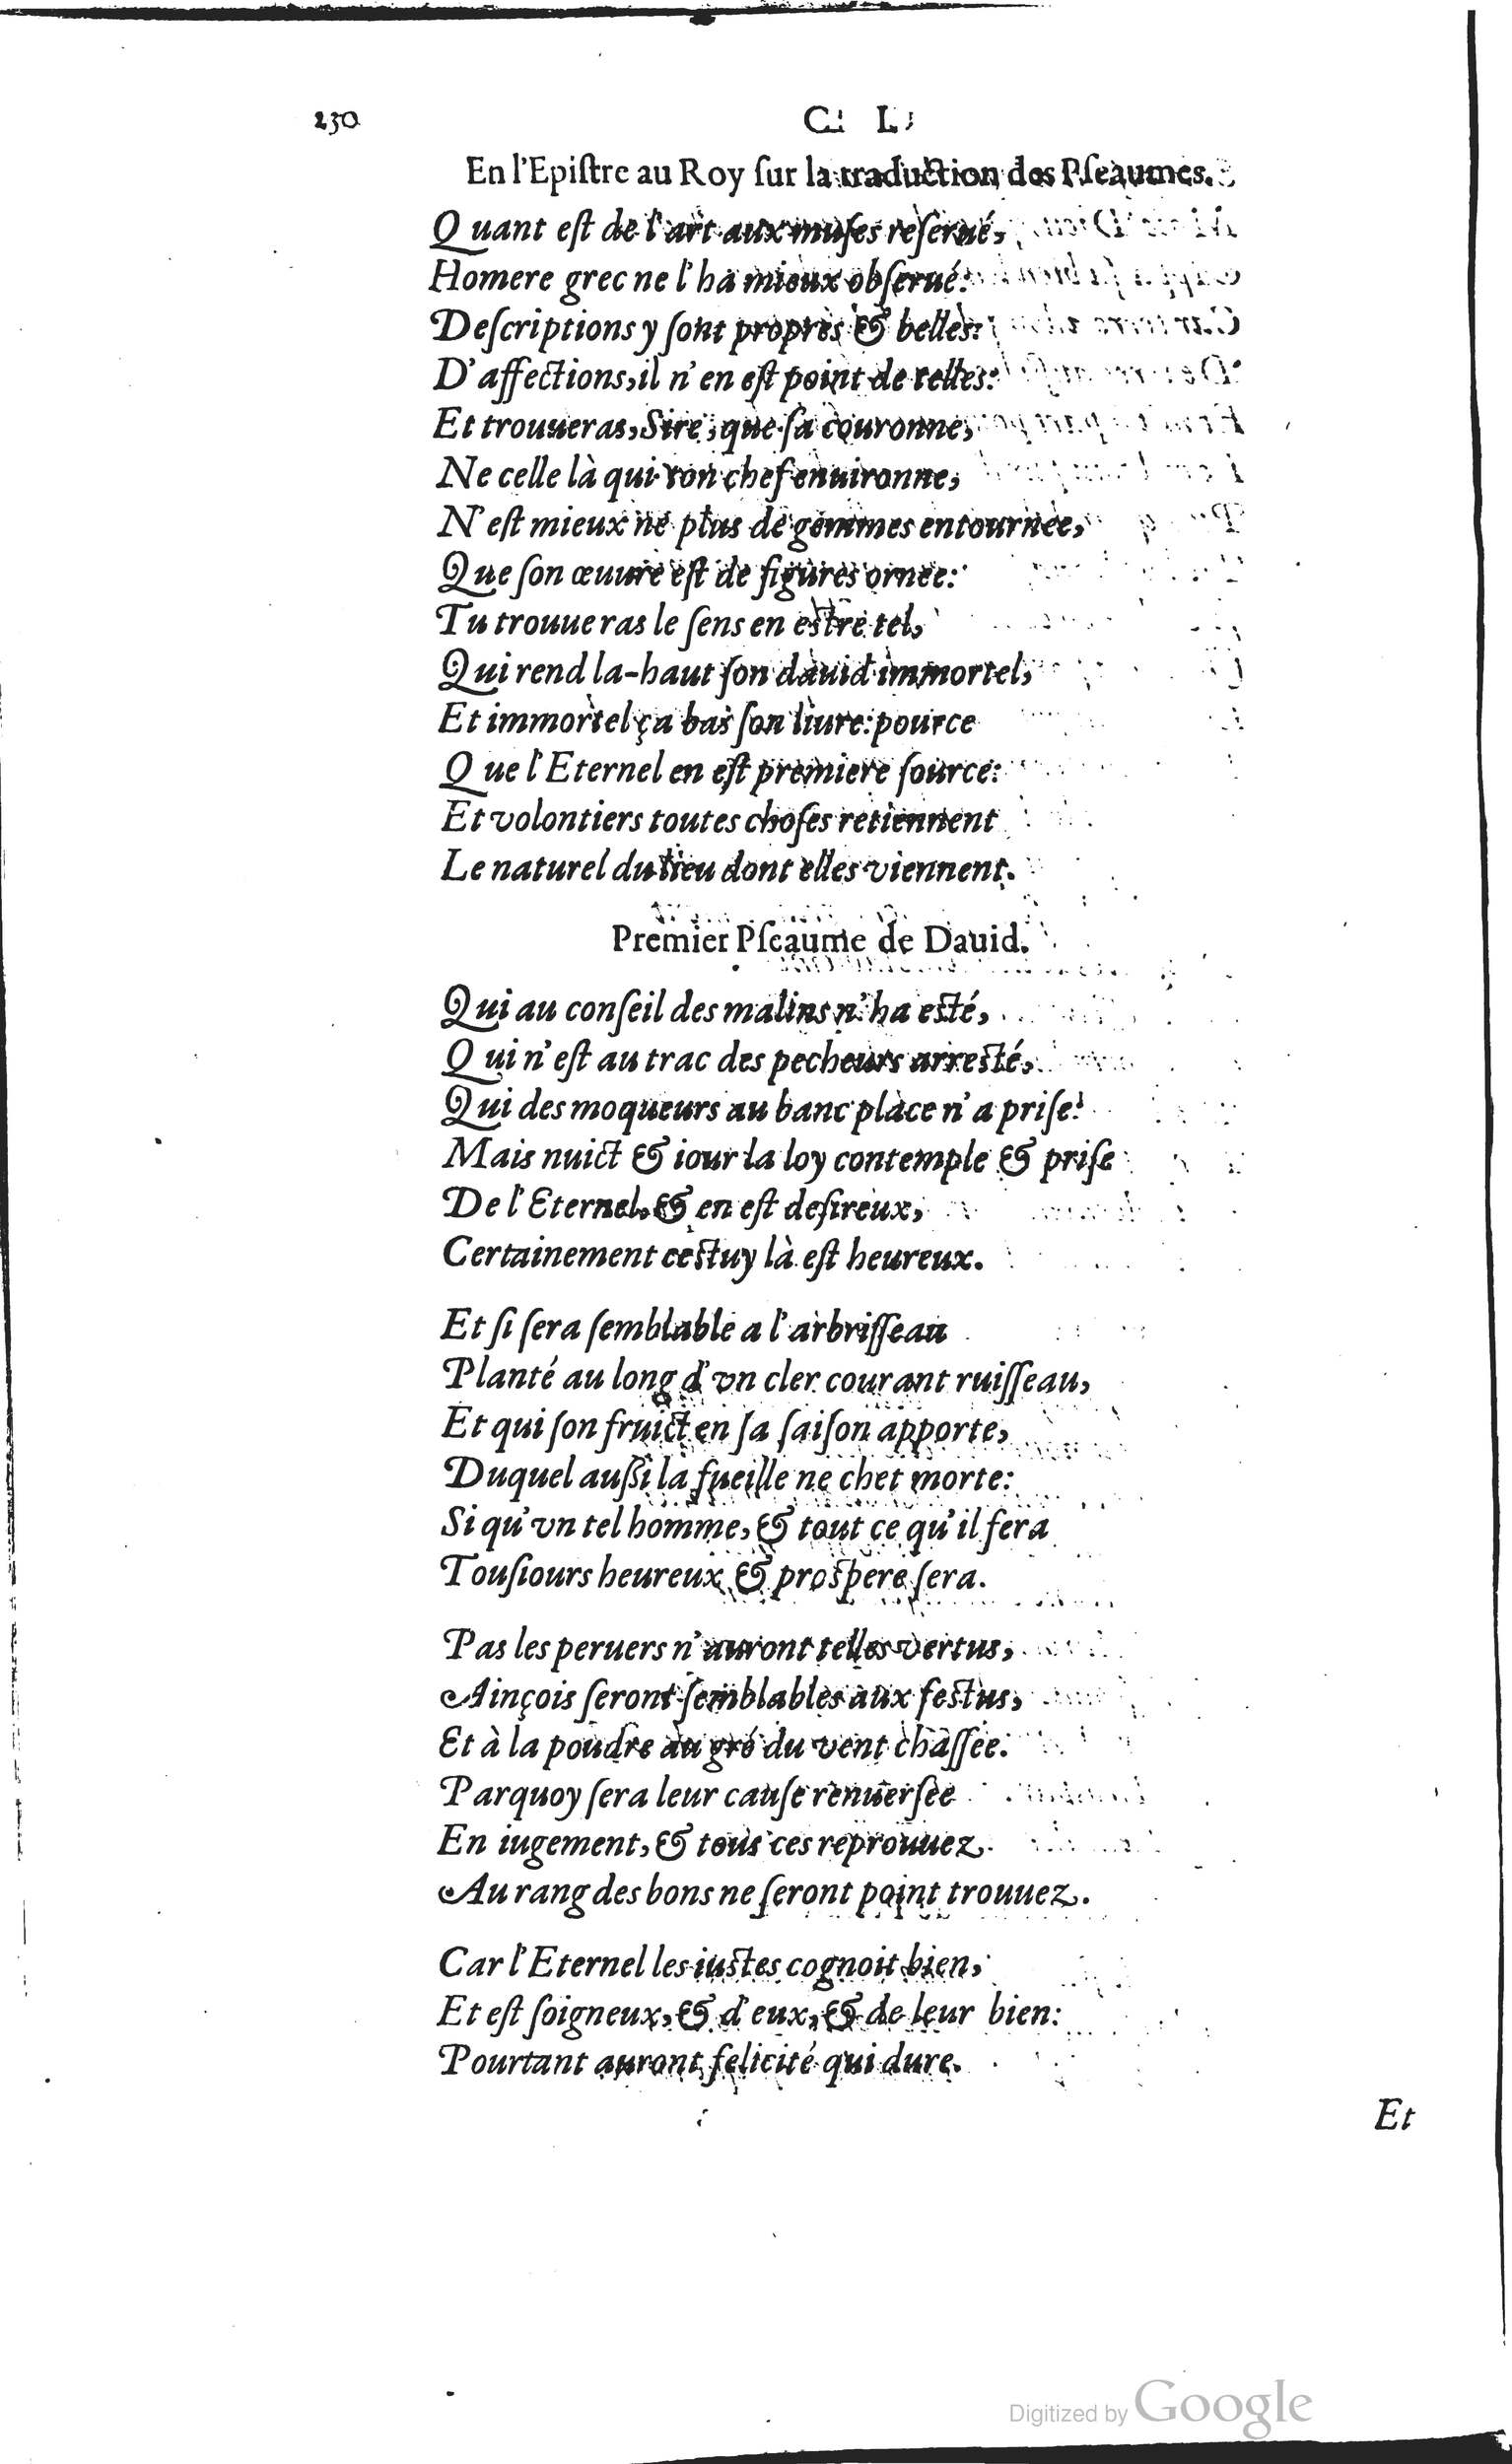 230
C L
En l'Epiſtre au Roy ſur la traduction des Pſeaumes.
Quant eſt de l'art aux muſes reſerué,
Homere grec ne l'ha mieux obſerué:
Deſcriptions y ſont propres & belles:
D'affections, il n'en eſt point de telles:
Et trouueras, Sire, que ſa couronne,
Ne celle là qui ton chef enuironne,
N'eſt mieux ne plus de gemmes entournée,
Que ſon œuure eſt de figures ornée:
Tu trouueras le ſens en eſtre tel,
Qui rend la-haut ſon dauid immortel,
Et immortel ça bas ſon liure: pource
Que l'Eternel en eſt premiere ſource:
Et volontiers toutes choſes retiennent
Le naturel du lieu dont elles viennent.
Premier Pſeaume de Dauid.
Qui au conſeil des malins n'ha eſté,
Qui n'eſt au trac des pecheurs arreſté,
Qui des moqueurs au banc place n'a priſe:
Mais nuict & iour la loy contemple & priſe
De l'Eternel, & en eſt deſireux,
Certainement ceſtuy là eſt heureux.
Et ſi ſera ſemblable a l'arbriſſeau
Planté au long d'vn cler courant ruiſſeau,
Et qui ſon fruict en ſa ſaiſon apporte,
Duquel auſſi la fueille ne chet morte:
Si qu'vn tel homme, & tout ce qu'il fera
Touſiours heureux & proſpere ſera.
Pas les peruers n'auront telles vertus,
Ainçois ſeront ſemblables aux feſtus,
Et à la poudre au gré du vent chaſſée.
Parquoy ſera leur cauſe renuerſée
En iugement, & tous ces reprouuez
Au rang des bons ne ſeront point trouuez.
Car l'Eternel les iuſtes cognoit bien,
Et eſt ſoigneux, & d'eux, & de leur bien:
Pourtant auront felicité qui dure.
Et
Digitized by Google